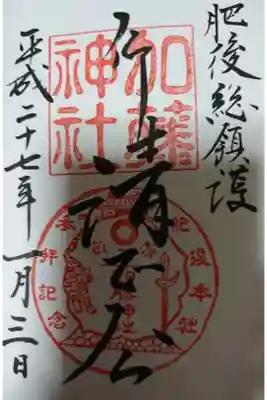 肥後総領護
加藤神社
清正公
平成二十七年一月三日
参拝記念